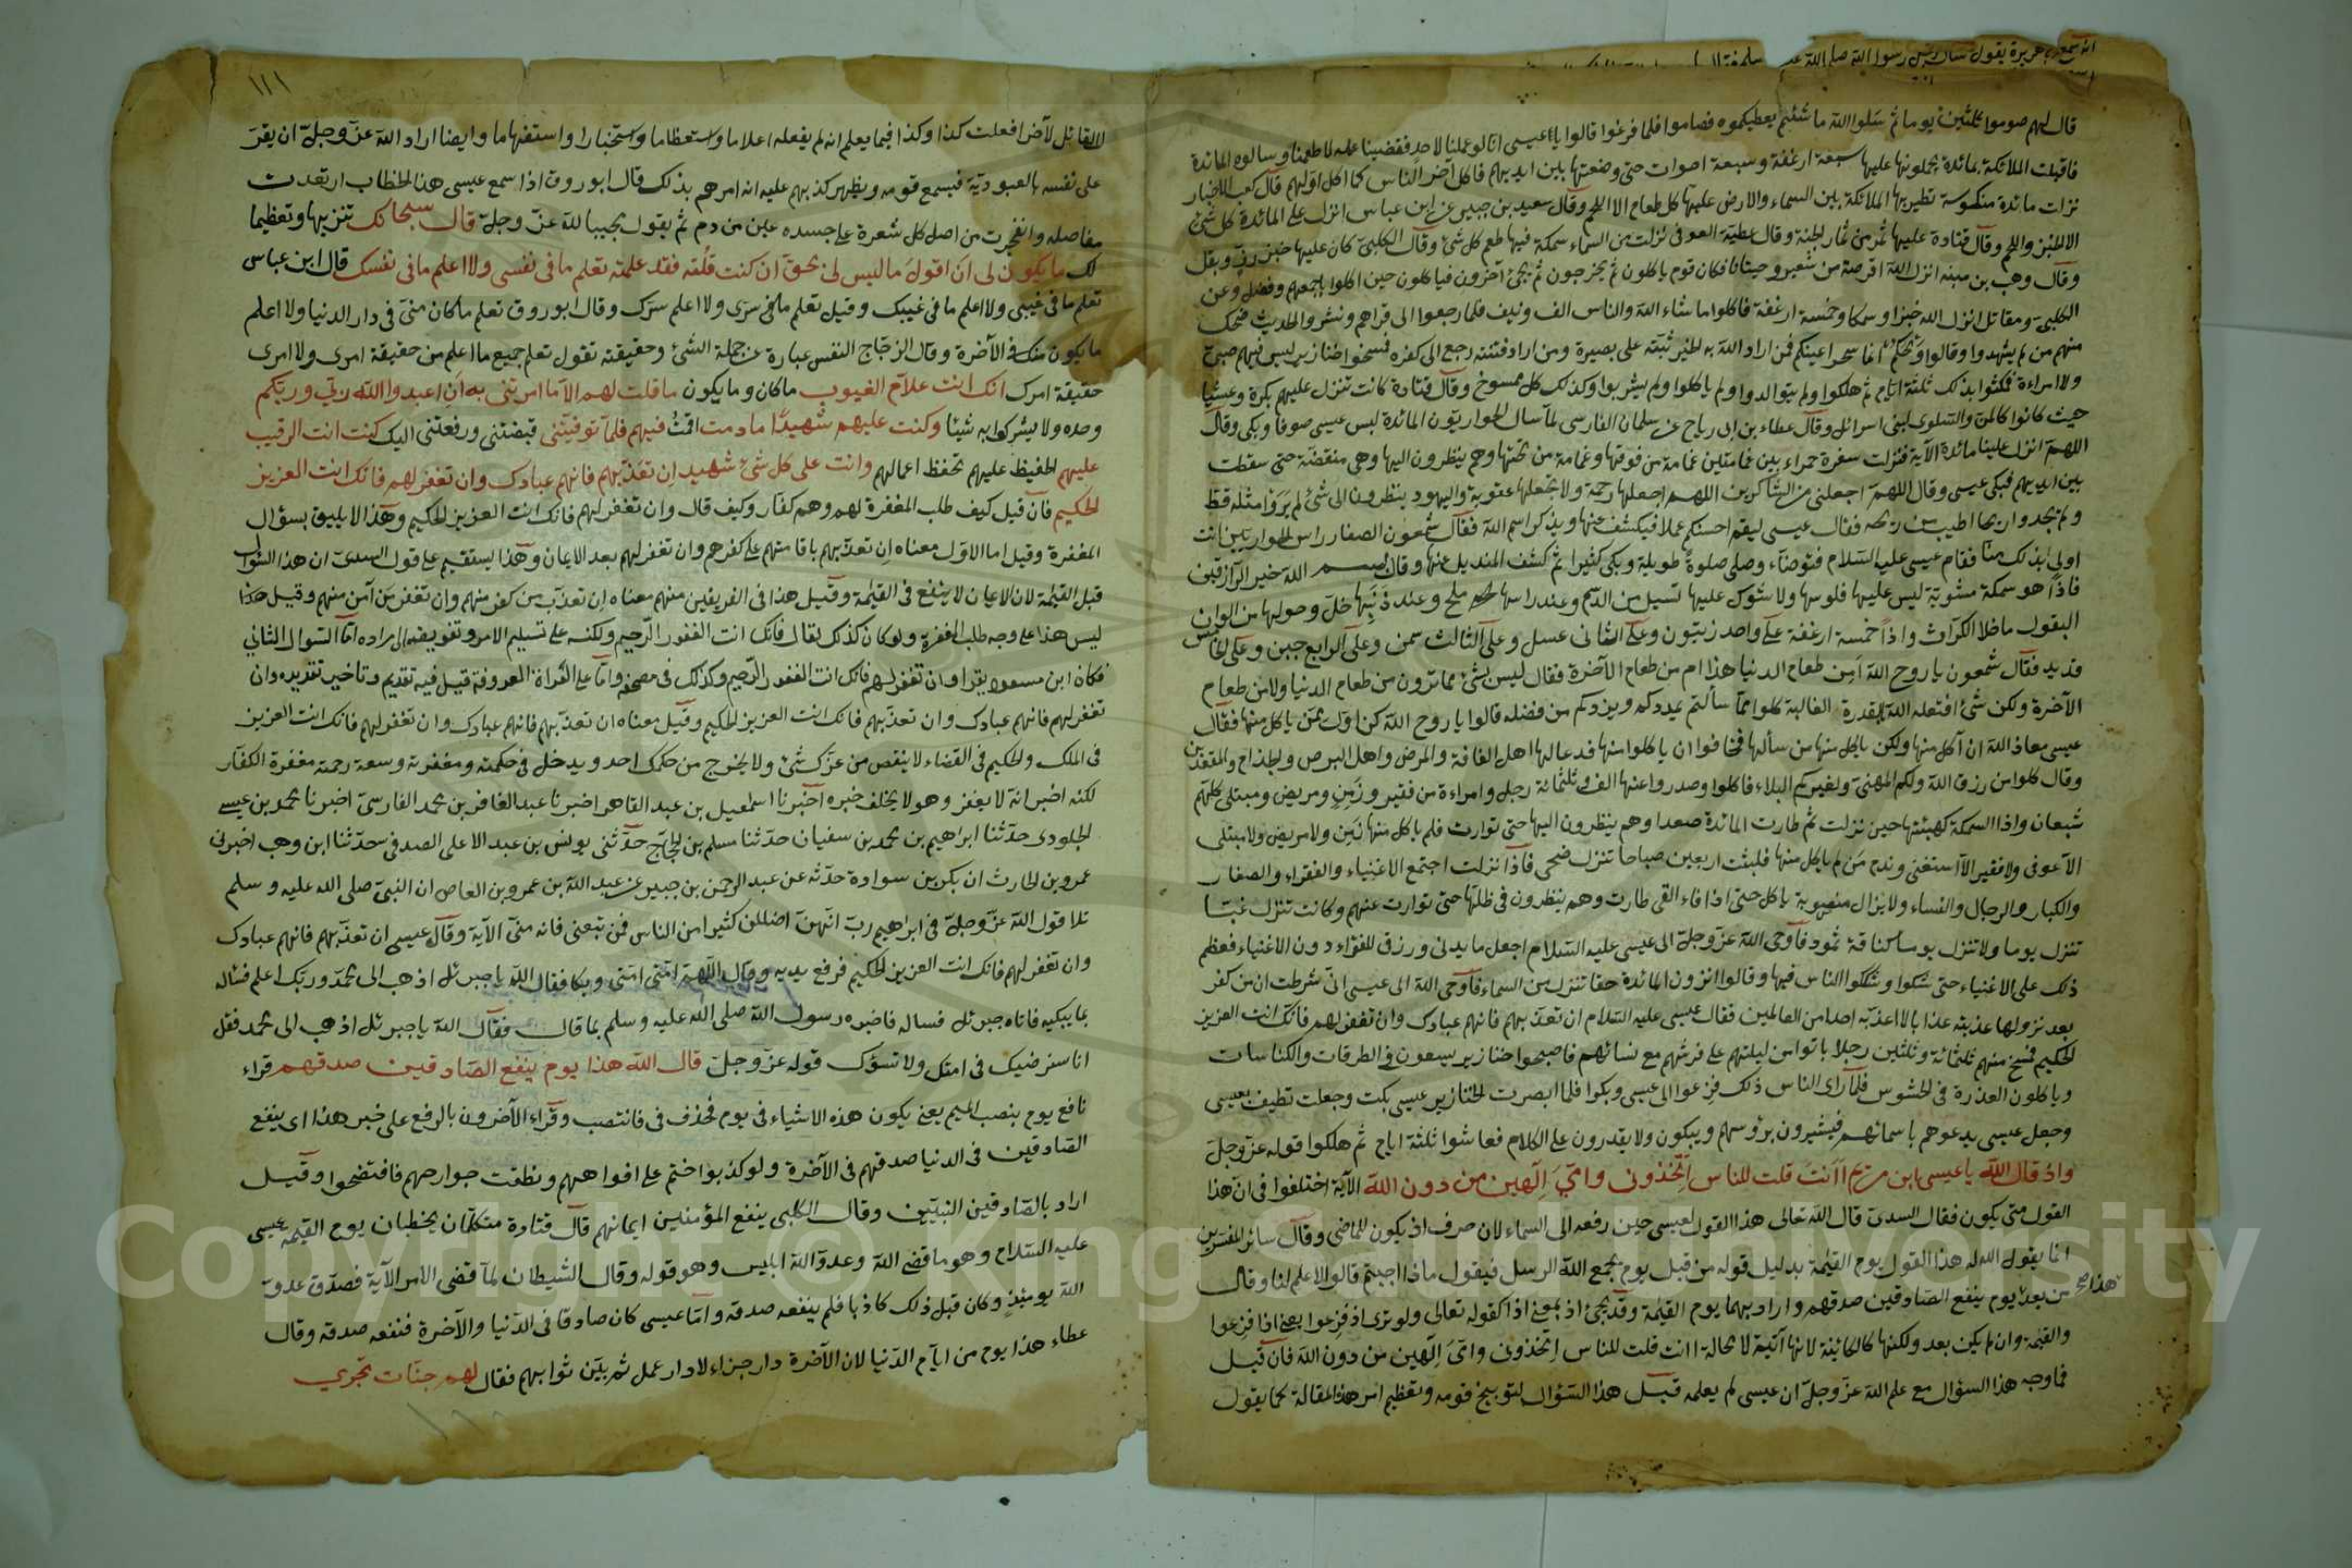 انه سمع ابا هريرة يقول قال رسول الله صلى الله عليه وسلم
قال لهم صوموا ثلثين يوما ثم سلوا الله ما شئتم يعطيكموه فصاموا فلما فرغوا قالوا يا عيسى انا لو عملنا لاحد فقضينا عمله لاطعمنا وسالوه المائدة
فاقبلت الملائكة بمائدة يحملونها عليها سبعة ارغفة وسبعة احوات حتى وضعتها بين ايديهم فاكل آخر الناس كما اكل اولهم قال كعب الاحبار
نزلت مائدة منكوسة تطير بها الملائكة بين السماء والارض عليها كل طعام الا اللحم وقال سعيد بن جبير عن ابن عباس انزل على المائدة كل شئ
الا الخبز واللحم وقال قتادة عليها ثمر من ثمار الجنة وقال عطية العوفى نزلت من السماء سمكة فيها طعم كل شئ وقال الكلبى كان عليها خبز رز وبقل
وقال وهب بن منبه انزل الله اقرصة من شعير وحيتانا فكان قوم ياكلون ثم يخرجون ثم يجئ آخرون فياكلون حتى اكلوا باجمعهم وفضل وعن
الكلبى ومقاتل انزل الله خبزا وسمكا وخمسة ارغفة فاكلوا ما شاء الله والناس الف ونيف فلما رجعوا الى قراهم ونشروا الحديث ضحك
منهم من لم يشهدوا وقالوا ويحكم انما سحر اعينكم فمن اراد الله به الخير ثبته على بصيرة ومن اراد فتنته رجع الى كفره فمسخوا خنازير ليس فيهم صبى
ولا امراءة فمكثوا بذلك ثلثة ايام ثم هلكوا ولم يتوالدوا ولم ياكلوا ولم يشربوا وكذلك كل ممسوخ وقال قتادة كانت تنزل عليهم بكرة وعشيا
حيث كانوا كالمن والسلوى لبنى اسرائل وقال عطاء بن ابى رباح عن سلمان الفارسى لما سال الحواريون المائدة لبس عيسى صوفا وبكى وقال
اللهم انزل علينا مائدة الآية فنزلت سفرة حمراء بين غمامتين غمامة من فوقها وغمامة من تحتها وهم ينظرون اليها وهى منقضة حتى سقطت
بين ايديهم فبكى عيسى وقال اللهم اجعلنى من الشاكرين اللهم اجعلها رحمة ولا تجعلها عقوبة واليهود ينظرون الى شئ لم يروا مثله قط
ولم يجدوا ريحا اطيب من ريحه فقال عيسى ليقم احسنكم عملا فيكشف عنها ويذكر اسم الله فقال شمعون الصفار راس الحواريين انت
اولى بذلك منا فقام عيسى عليه السلام فتوضاء وصلى صلوة طويلة وبكى كثيرا ثم كشف المنديل عنها وقال بسم الله خير الرازقين
فاذا هو سمكة مشوية ليس عليها فلوسها ولا شوك عليها تسيل من الدسم وعند راسها ملح وعند ذنبها خل وحولها من الوان
البقول ما خلا الكراث واذا خمسة ارغفة على واحد زيتون وعلى الثانى عسل وعلى الثالث سمن وعلى الرابع جبن وعلى الخامس
قديد فقال شمعون يا روح الله امن طعام الدنيا هذا ام من طعام الآخرة فقال ليس شئ مما ترون من طعام الدنيا ولا من طعام
الآخرة ولكن شئ افتعله الله بالقدرة الغالبة كلوا مما سألتم يمددكم ويزدكم من فضله قالوا يا روح الله كن اول من ياكل منها فقال
عيسى معاذ الله ان آكل منها ولكن ياكل منها من سألها فخافوا ان ياكلوا منها فدعا لها اهل الفاقة والمرض واهل البرص والجذام والمقعدين
وقال كلوا من رزق الله ولكم المهنئ ولغيركم البلاء فاكلوا وصدروا عنها الف وثلثمائة رجل وامراءة من فقير وزمن ومريض ومبتلى كلهم
شبعان واذا السمكة كهيئتها حين نزلت ثم طارت المائدة صعدا وهم ينظرون اليها حتى توارت فلم ياكل منها زمن ولا مريض ولا مبتلى
الا عوفى ولا فقير الا استغنى وندم من لم ياكل منها فلبثت اربعين صباحا تنزل ضحى فاذا نزلت اجتمع الاغنياء والفقراء والصغار
والكبار والرجال والنساء ولا يزال منصوبة ياكل حتى اذا فاء الفى طارت وهم ينظرون فى ظلها حتى توارت عنهم وكانت تنزل غبا
تنزل يوما ولا تنزل يوما كناقة ثمود فاوحى الله عز وجل الى عيسى عليه السلام اجعل مايدتى ورزقى للفقراء دون الاغنياء فعظم
ذلك على الاغنياء حتى شكوا وشككوا الناس فيها وقالوا اترون المائدة حقا تنزل من السماء فاوحى الله الى عيسى انى شرطت ان من كفر
بعد نزولها عذبته عذابا لا اعذبه احدا من العالمين فقال عيسى عليه السلام ان تعذبهم فانهم عبادك وان تغفر لهم فانك انت العزيز
الحكيم فمسخ منهم ثلثمائة وثلثين رجلا باتوا من ليلتهم على فرشهم مع نسائهم فاصبحوا خنازير يسعون فى الطرقات والكناسات
وياكلون العذرة فى الحشوس فلما رأى الناس ذلك فزعوا الى عيسى وبكوا فلما ابصرت الخنازير عيسى بكت وجعلت تطيف بعيسى
وجعل عيسى يدعوهم باسمائهم فيشيرون برؤسهم ويبكون ولا يقدرون على الكلام فعاشوا ثلثة ايام ثم هلكوا قوله عز وجل
واذ قال الله يا عيسى ابن مريم أأنت قلت للناس اتخذونى وامى الهين من دون الله الآية اختلفوا فى ان هذا
القول متى يكون فقال السدى قال الله تعالى هذا القول لعيسى حين رفعه الى السماء لان حرف اذ يكون للماضى وقال سائر المفسرين
انما يقول الله له هذا القول يوم القيمة بدليل قوله من قبل يوم يجمع الله الرسل فيقول ماذا اجبتم قالوا لا علم لنا وقال
من بعد هذا يوم ينفع الصادقين صدقهم واراد بهما يوم القيمة وقد يجئ اذ بمعنى اذا كقوله تعالى ولو ترى اذ فزعوا بمعنى اذا فزعوا
والقيمة وان لم يكن بعد ولكنها كالكائنة لانها آتية لا محالة اانت قلت للناس اتخذونى وامى الهين من دون الله فان قيل
فما وجه هذا السؤال مع علم الله عز وجل ان عيسى لم يعلمه قيل هذا السؤال لتوبيخ قومه وتعظيم امر هذه المقالة كما يقول
١١١
القائل لآخر افعلت كذا وكذا فيما يعلم انه لم يفعله اعلاما واستعظاما واستخبارا واستفهاما وايضا اراد الله عز وجل ان يقر
على نفسه بالعبودية فيسمع قومه ويظهر كذبهم عليه انه امرهم بذلك قال ابو روق اذا سمع عيسى هذا الخطاب ارتعدت
مفاصله وانفجرت من اصل كل شعرة على جسده عين من دم ثم يقول مجيبا لله عز وجل قال سبحانك تنزيها وتعظيما
لك ما يكون لى ان اقول ما ليس لى بحق ان كنت قلته فقد علمته تعلم ما فى نفسى ولا اعلم ما فى نفسك قال ابن عباس
تعلم ما فى غيبى ولا اعلم ما فى غيبك وقيل تعلم ما فى سرى ولا اعلم سرك وقال ابو روق تعلم ما كان منى فى دار الدنيا ولا اعلم
ما يكون منك فى الآخرة وقال الزجاج النفس عبارة عن جملة الشئ وحقيقته تقول تعلم جميع ما اعلم من حقيقة امرى ولا ادرى
حقيقة امرك انك انت علام الغيوب ماكان وما يكون ما قلت لهم الا ما امرتنى به ان اعبدوا الله ربى وربكم
وحده ولا يشركوا به شيئا وكنت عليهم شهيدا ما دمت اقمت فيهم فلما توفيتنى قبضتنى ورفعتنى اليك كنت انت الرقيب
عليهم الحفيظ عليهم تحفظ اعمالهم وانت على كل شئ شهيد ان تعذبهم فانهم عبادك وان تغفر لهم فانك انت العزيز
الحكيم فان قيل كيف طلب المغفرة لهم وهم كفار وكيف قال وان تغفر لهم فانك انت العزيز الحكيم وهذا لا يليق بسؤال
المغفرة وقيل اما الاول معناه ان تعذبهم باقامتهم على كفرهم وان تغفر لهم بعد الايمان وهذا يستقيم على قول السدى ان هذا السؤال
قبل القيمة لان الايمان لا ينفع فى القيمة وقيل هذا فى الفريقين منهم معناه ان تعذب من كفر منهم وان تغفر من آمن منهم وقيل هذا
ليس هذا على وجه طلب المغفرة ولو كان كذلك لقال فانك انت الغفور الرحيم ولكنه على تسليم الامر وتفويضه الى مراده اما السؤال الثانى
فكان ابن مسعود يقرا وان تغفر لهم فانك انت الغفور الرحيم وكذلك فى مصحفه واما على القراة المعروفة قيل فيه تقديم وتاخير تقديره وان
تغفر لهم فانهم عبادك وان تعذبهم فانك انت العزيز الحكيم وقيل معناه ان تعذبهم فانهم عبادك وان تغفر لهم فانك انت العزيز
فى الملك والحكيم فى القضاء لا ينقص من عزك شئ ولا يخرج من حكمك احد ويدخل فى حكمته ومغفرته وسعة رحمته مغفرة الكفار
لكنه اخبر انه لا يغفر وهو لا يخلف خبره اخبرنا اسمعيل بن عبد القاهر اخبرنا عبد الغافر بن محمد الفارسى اخبرنا محمد بن عيسى
الجلودى حدثنا ابراهيم بن محمد بن سفيان حدثنا مسلم بن الحجاج حدثنى يونس بن عبد الاعلى الصدفى حدثنا ابن وهب اخبرنى
عمرو بن الحارث ان بكر بن سوادة حدثه عن عبد الرحمن بن جبير عن عبد الله بن عمرو بن العاص ان النبى صلى الله عليه وسلم
تلا قول الله عز وجل فى ابراهيم رب انهن اضللن كثيرا من الناس فمن تبعنى فانه منى الآية وقال عيسى ان تعذبهم فانهم عبادك
وان تغفر لهم فانك انت العزيز الحكيم فرفع يديه وقال اللهم امتى امتى وبكا فقال الله يا جبرئل اذهب الى محمد وربك اعلم فسئله
ما يبكيه فاتاه جبرئل فساله فاخبره رسول الله صلى الله عليه وسلم بما قال فقال الله يا جبرئل اذهب الى محمد فقل
انا سنرضيك فى امتك ولا نسؤك قوله عز وجل قال الله هذا يوم ينفع الصادقين صدقهم قراء
نافع يوم بنصب الميم يعنى يكون هذه الاشياء فى يوم فحذف فى فانتصب وقراء الآخرون بالرفع على خبر هذا اى ينفع
الصادقين فى الدنيا صدقهم فى الآخرة ولو كذبوا ختم على افواههم ونطقت جوارحهم فافتضحوا وقيل
اراد بالصادقين النبيين وقال الكلبى ينفع المؤمنين ايمانهم قال قتادة متكلمان يخطبان يوم القيمة عيسى
عليه السلام وهو ما قص الله وعدو الله ابليس وهو قوله وقال الشيطان لما قضى الامر الآية فصدق عدو
الله يومئذ وكان قبل ذلك كاذبا فلم ينفعه صدقه واما عيسى كان صادقا فى الدنيا والآخرة فنفعه صدقه وقال
عطاء هذا يوم من ايام الدنيا لان الآخرة دار جزاء لا دار عمل ثم بين ثوابهم فقال لهم جنات تجرى
Copyright © King Saud University